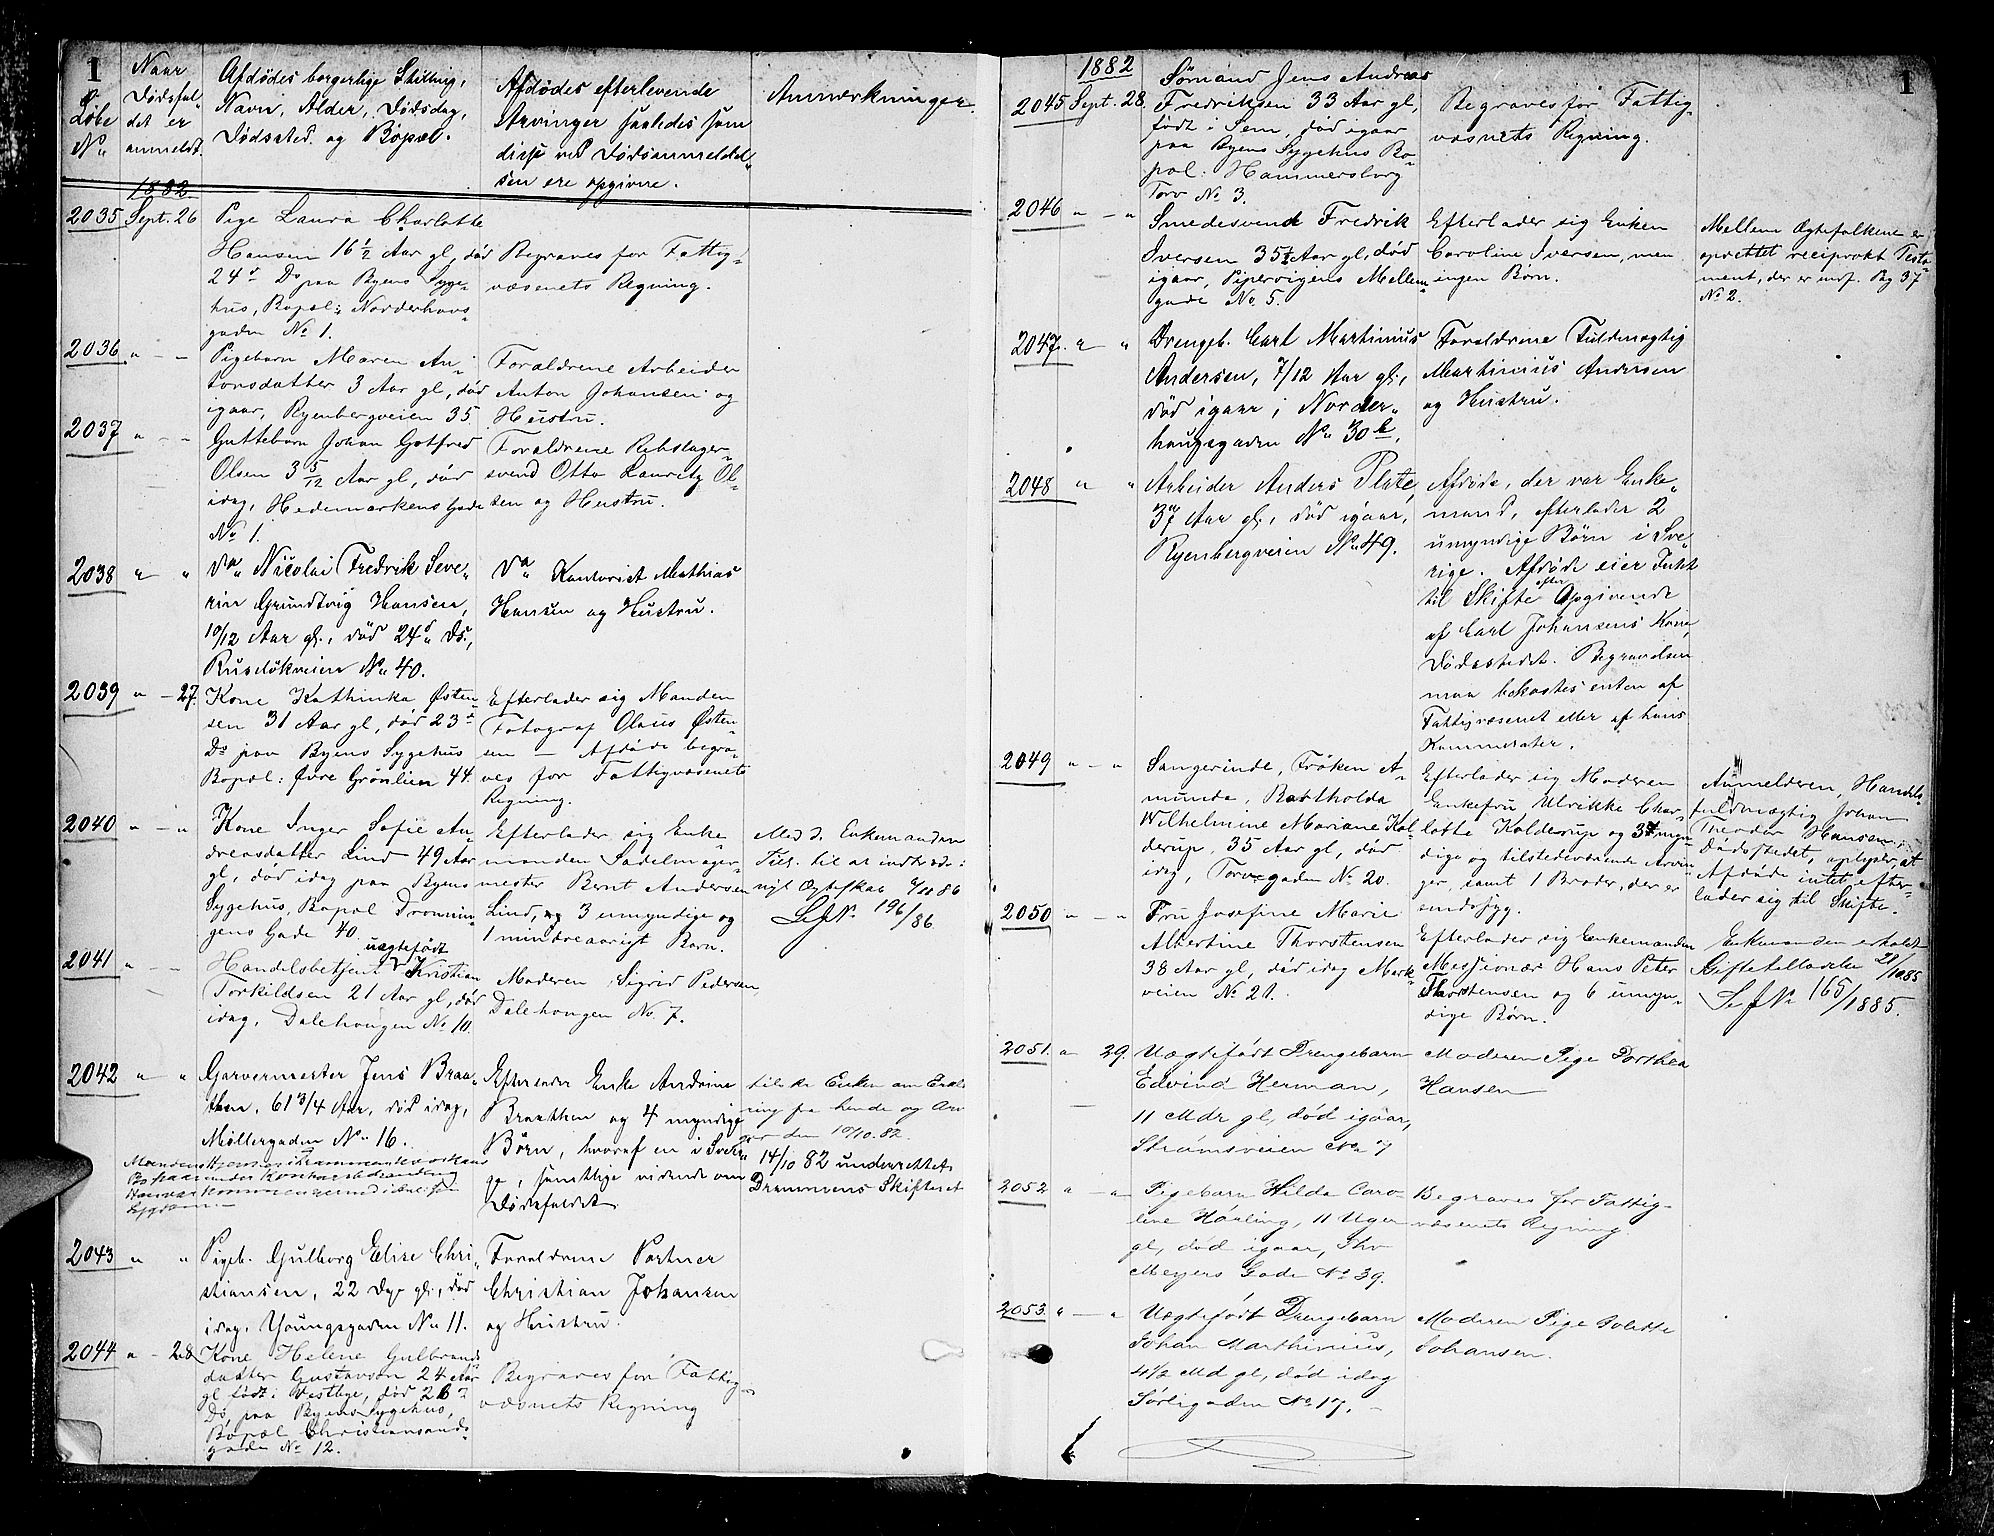 1
Løbe
No
Naar
Dødsfal-
det er
anmeldt.
Afdødes borgerlige Stilling,
Navn, Alder, Dødsdag,
Dødssted og Bopæl.
Afdødes efterlevende
Arvinger saaledes som
disse ved Dødsanmeldel-
sen ere opgivne.
Anmærkninger
1882
2035 Sept. 26
Pige Laura Charlotte
Hansen 16 1/2 Aar gl, død
24de Ds paa Byens Syge-
hus, Bopæl: Norderhovs-
gaden No 1.
Begraves for Fattig-
væsenets Regning.
2036 " - -
Pigebarn Maren An-
tonsdatter 3 Aar gl, død
igaar, Ryenbergveien 35
Forældrene Arbeider
Anton Johansen og
Hustru.
2037 " - -
Guttebarn Johan Gotfred
Olsen 3 5/12 Aar gl, død
idag, Hedemarkens Gade
No 1.
Forældrene Rebslager-
svend Otto Lauritz Ol-
sen og Hustru.
2038 " "
Do Nicolai Fredrik Seve-
rin Grundtvig Hansen,
10/12 Aar gl., død 24de Ds.,
Ruseløkveien No 40.
Do Kontorist Mathias
Hansen og Hustru.
2039 " - 27.
Kone Kathinka Østen-
sen 31 Aar gl, død 23de
Ds paa Byens Sygehus
Bopæl: Øvre Grønlien 44.
Efterlader sig Manden
Fotograf Olaus Østen-
sen - Afdøde begra-
ves for Fattigvæsenets
Regning.
2040 " - "
Kone Inger Sofie An-
drensdatter Lind 49 Aar
gl, død idag paa Byens
Sygehus, Bopæl Dronnin-
gens Gade 40.
Efterlader sig Enke-
manden Sadelmager-
mester Bernt Andersen
Lind, og 3 umyndige og
1 mindreaarigt Barn.
Med d. Enkemanden
Till. til at indtræde i
nyt Ægteskab 6/11 86
S. J No 196/86
2041 " - -
uægtefødt
Handelsbetjent Kristian
Torkildsen 21 Aar gl, død
idag, Dalehougen No 10.
Moderen Sigrid Pedersen
Dalehougen No. 7.
2042 " "
Garvermester Jens Braa-
then, 61 3/4 Aar, død idag,
Møllergaden No 16.
Efterlader Enke Andrine
Braathen og 4 myndige
Børn, hvoraf en i Sveri-
ge, samtlige vidende om
Dødsfaldet.
den 10/10. 82.
14/10 82 underrettet
Drammens Skifteret
2043 " "
Pigeb. Gulborg Elise Chri-
stiansen, 22 Dage gl., død
idag, Youngsgaden No 11.
Forældrene Portner
Christian Johansen
og Hustru.
2044 " - 28
Kone Helene Gulbrands-
datter Gustavson 24 Aar
gl født i Vestbye, død 26de
Ds, paa Byens Sygehus,
Bopæl Christiansands-
gade No 12.
Begraves for Fattig-
væsnets Regning
1
1882
2045 Sept. 28.
Sømand Jens Andreas
Fredriksen 33 Aar gl,
født i Sem, død igaar
paa Byens Sygehus Bo-
pæl. Hammersborg
Torv No 3.
Begraves for Fattig-
væsnets Regning.
2046 " - "
Smedesvend Fredrik
Iversen 35 1/2 Aar gl, død
igaar, Pipervigens Mellem-
gade No 5.
Efterlader sig Enken
Caroline Iversen, men
ingen Børn.
Mellem Ægtefolkene er
oprettet reciprokt Testa-
ment, der er indf. Pg 37
No 2.
2047. " - "
Drengeb. Carl Martinius
Andersen, 7/12 Aar gl.,
død igaar i Norder-
hougsgaden No 30 b.
Forældrene Fuldmægtig
Martinius Andersen
og Hustru.
2048 " "
Arbeider Anders Plate,
37 Aar gl., død igaar,
Ryenbergveien No 49.
Afdøde, der var Enke-
mand, efterlader 2
umyndige Børn i Sve-
rige. Afdøde eier Intet
til Skifte efter Opgivende
af Carl Johansens Kone,
Dødsstedet. Begravelsen
maa bekostes enten af
Fattigvæsenet eller af hans
Kammerater.
2049 " - "
Sangerinde, Frøken A-
munda, Bartholda
Wilhelmine Mariane Kol-
derup, 35 Aar gl, død
idag, Torvegaden No 20.
Efterlader sig Moderen
Enkefru Ulrikke Char-
lotte Kolderup og 3 myn-
dige og tilstedeværende Arvin-
ger, samt 1 Broder, der er
sindssyg.
Anmelderen, Handels-
fuldmægtig Johan
Theodor Hansen,
Dødsstedet, oplyser, at
Afdøde intet efter-
lader sig til Skifte.
2050 " - "
Fru Josefine Marie
Albertine Thorstensen
38 Aar gl, død idag Mark-
veien No 21.
Efterlader sig Enkemanden
Missionær Hans Peter
Thorstensen og 6 umyn-
dige Børn.
Enkemanden erholdt
Giftetilladelse 21/10 85
S. J No 165/1885.
2051. " 29.
Uægtefødt Drengebarn
Edvind Herman,
11 Mdr gl, død igaar,
Strømsveien No 7
Moderen Pige Dorthea
Hansen
2052 " - "
Pigebarn Hilda Caro-
line Høiling, 11 Uger
gl, død igaar, Thv
Meyers Gade No 39.
Begraves for Fattig-
væsnets Regning
2053. " - "
Uægtefødt Drengebarn
Johan Marthinius,
4 1/2 Md gl, død idag
Sørligaden No 17.
Moderen Pige Bolette
Johansen.